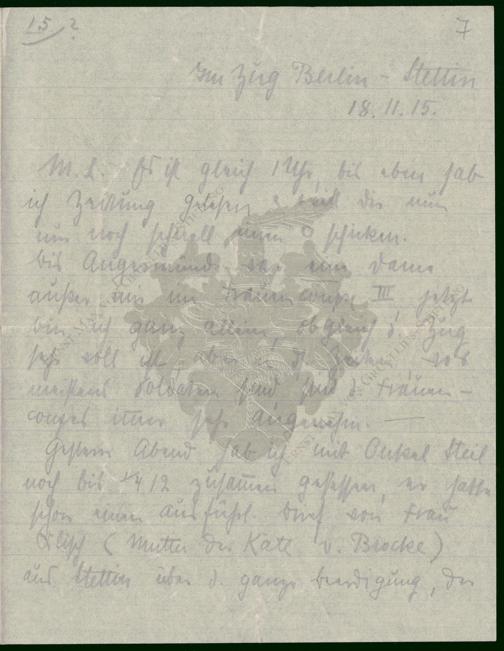 15 ?
7
Im Zug Berlin – Stettin
18.11.15.
M. L. Es ist gleich 1 Uhr, bis eben hab
ich Zeitung gelesen & will dir nun
nur noch schnell einen schicken.
Bis Angermünde war eine Dame
außer mir im Frauencoupe III jetzt
bin ich ganz allein, obgleich d. Zug
sehr voll ist, aber in
meistens Soldaten sind sind d. Frauen-
coupes immer sehr angenehm. —
Gestern Abend hab ich mit Onkel Steil
noch bis 1/4 12 zusammen gesessen, er hatte
schon einen ausführl. Brief von Frau
(Mutter der Käte v. Brocke)
aus Stettin über d. ganze Beerdigung, der